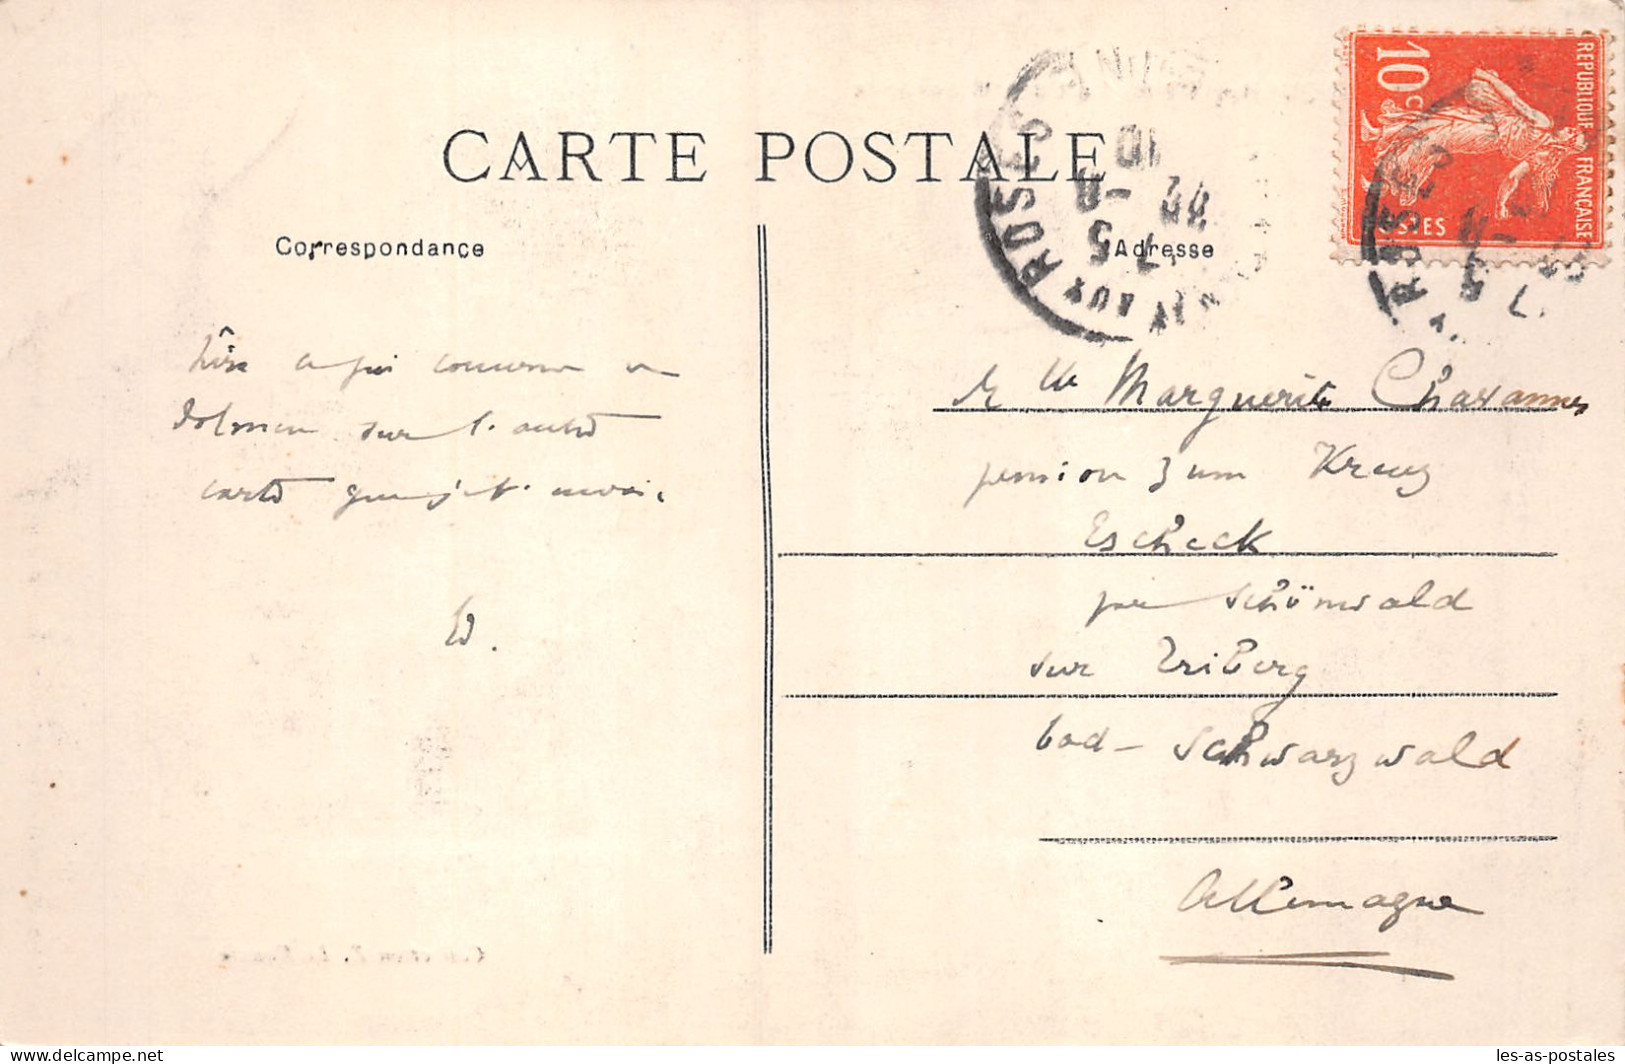 CARTE POSTALE
Correspondance
Adresse
REPUBLIQUE FRANÇAISE
10 c
POSTES
AUX ROSES
lire ce qui concerne ce
dolmen sur l'autre
carte que je t'envoie.
M lle Marguerite Chavannes
pension zum Kreuz
Escheck
par Schönwald
sur Triberg
bad - Schwarzwald
Allemagne
les-as-postales